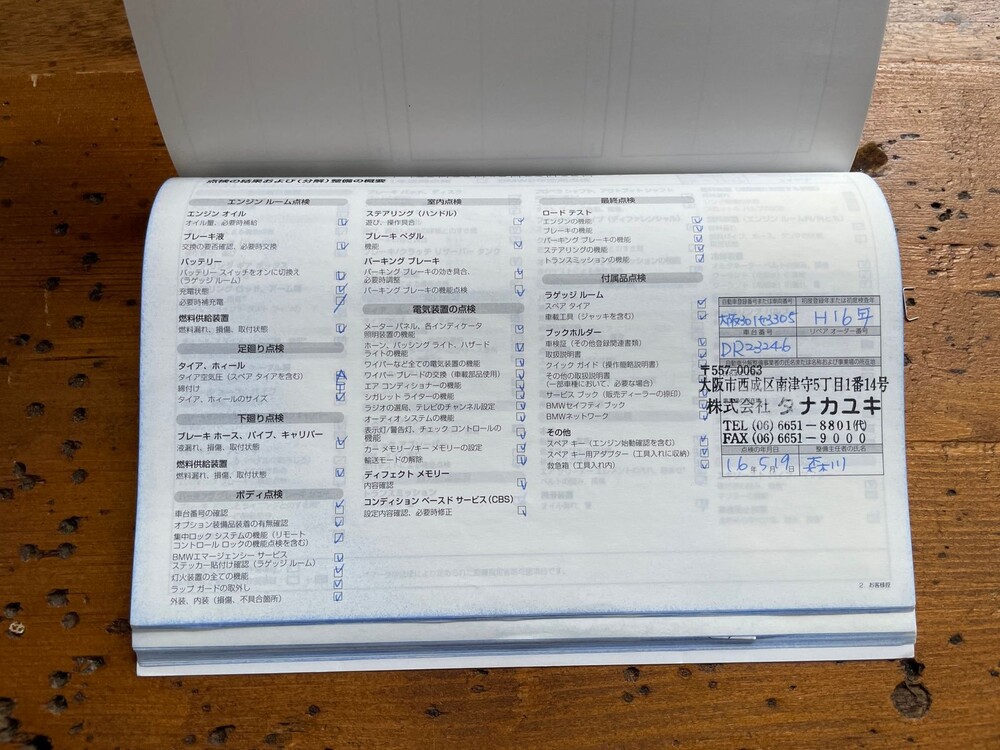 点検の結果および(分解)整備の概要
エンジン ルーム点検
エンジン オイル
オイル量、必要時補給
ブレーキ液
交換の要否確認、必要時交換
バッテリー
バッテリー スイッチをオンに切換え
(ラゲッジ ルーム)
充電状態
必要時補充電
燃料供給装置
燃料漏れ、損傷、取付状態
足廻り点検
タイア、ホィール
タイア空気圧(スペア タイアを含む)
締付け
タイア、ホィールのサイズ
下廻り点検
ブレーキ ホース、パイプ、キャリパー
液漏れ、損傷、取付状態
燃料供給装置
燃料漏れ、損傷、取付状態
ボディ点検
車台番号の確認
オプション装備品装着の有無確認
集中ロック システムの機能(リモート
コントロール ロックの機能点検を含む)
BMWエマージェンシー サービス
ステッカー貼付け確認(ラゲッジ ルーム)
灯火装置の全ての機能
ラップ ガードの取外し
外装、内装(損傷、不具合箇所)
室内点検
ステアリング(ハンドル)
遊び、操作具合
ブレーキ ペダル
機能
パーキング ブレーキ
パーキング ブレーキの効き具合、
必要時調整
パーキング ブレーキの機能点検
電気装置の点検
メーター パネル、各インディケータ
照明装置の機能
ホーン、パッシング ライト、ハザード
ライトの機能
ワイパーなど全ての電気装置の機能
ワイパー ブレードの交換(車載部品使用)
エア コンディショナーの機能
シガレット ライターの機能
ラジオの選局、テレビのチャンネル設定
オーディオ システムの機能
表示灯/警告灯、チェック コントロールの
機能
カー メモリー/キー メモリーの設定
輸送モードの解除
ディフェクト メモリー
内容確認
コンディション ベースド サービス(CBS)
設定内容確認、必要時修正
最終点検
ロード テスト
エンジンの機能
ブレーキの機能
パーキング ブレーキの機能
ステアリングの機能
トランスミッションの機能
付属品点検
ラゲッジ ルーム
スペア タイア
車載工具(ジャッキを含む)
ブックホルダー
車検証(その他登録関連書類)
取扱説明書
クイック ガイド(操作簡略説明書)
その他の取扱説明書
(一部車種において、必要な場合)
サービス ブック(販売ディーラーの捺印)
BMWセイフティ ブック
BMWネットワーク
その他
スペア キー(エンジン始動確認を含む)
スペア キー用アダプター(工具入れに収納)
救急箱(工具入れ内)
自動車登録番号または車両番号
初度登録年または初度検査年
H16年
車台番号
リペア オーダー番号
DR23246
〒557-0063
大阪市西成区南津守5丁目1番14号
株式会社 タナカユキ
TEL (06) 6651-8801(代)
FAX (06) 6651-9000
点検の年月日
整備主任者の氏名
16年5月19日
森川
2. お客様控